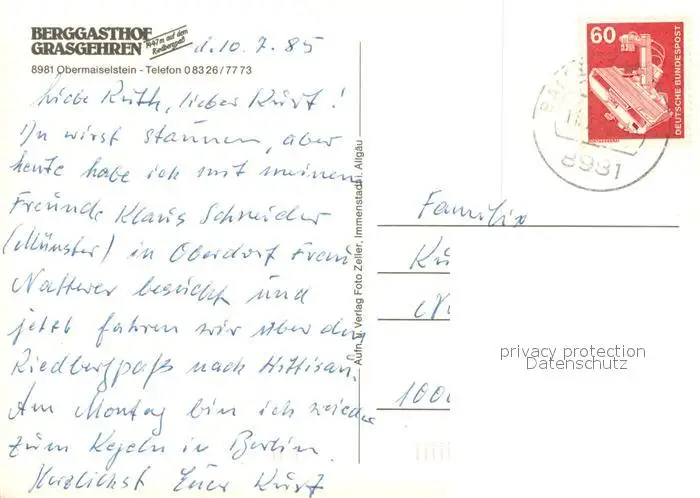 BERGGASTHOF
GRASGEHREN 1447 m auf dem Riedbergpaß
8981 Obermaiselstein - Telefon 0 83 26 / 77 73
d. 10. 7. 85
Liebe Ruth, lieber Kurt!
Du wirst staunen, aber
heute habe ich mit meinem
Freunde Klaus Schneider
(Münster) in Oberdorf Frau
Natterer besucht und
jetzt fahren wir über den
Riedbergpaß nach Hittisau.
Am Montag bin ich wieder
zum Kegeln in Berlin.
Herzlichst Euer Kurt
Aufn. u. Verlag Foto Zeller, Immenstadt i. Allgäu
60
DEUTSCHE BUNDESPOST
8981
Familie
Ku
1000
privacy protection
Datenschutz